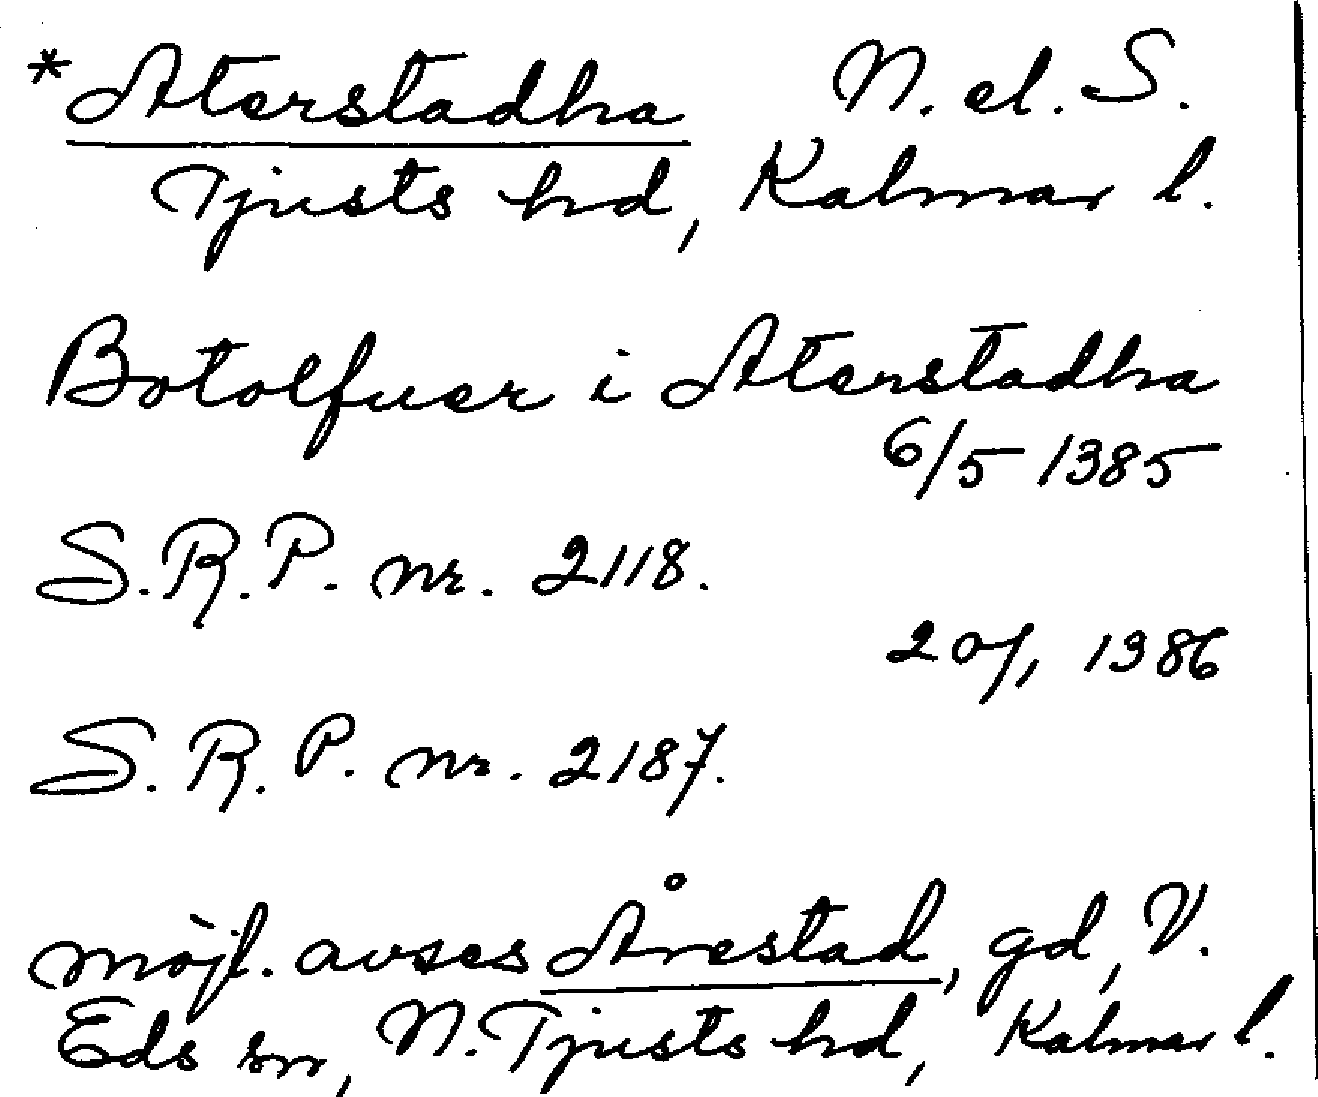 *Aterstadha N. el. S.
Tjusts hd, Kalmar l.
Botolfuer i Aterstadha
6/5 1385
S.R.P. nr. 2118.
20/1 1386
S.R.P. nr. 2187.
möjl. avses Årestad, gd, V.
Eds sn, N. Tjusts hd, Kalmar l.